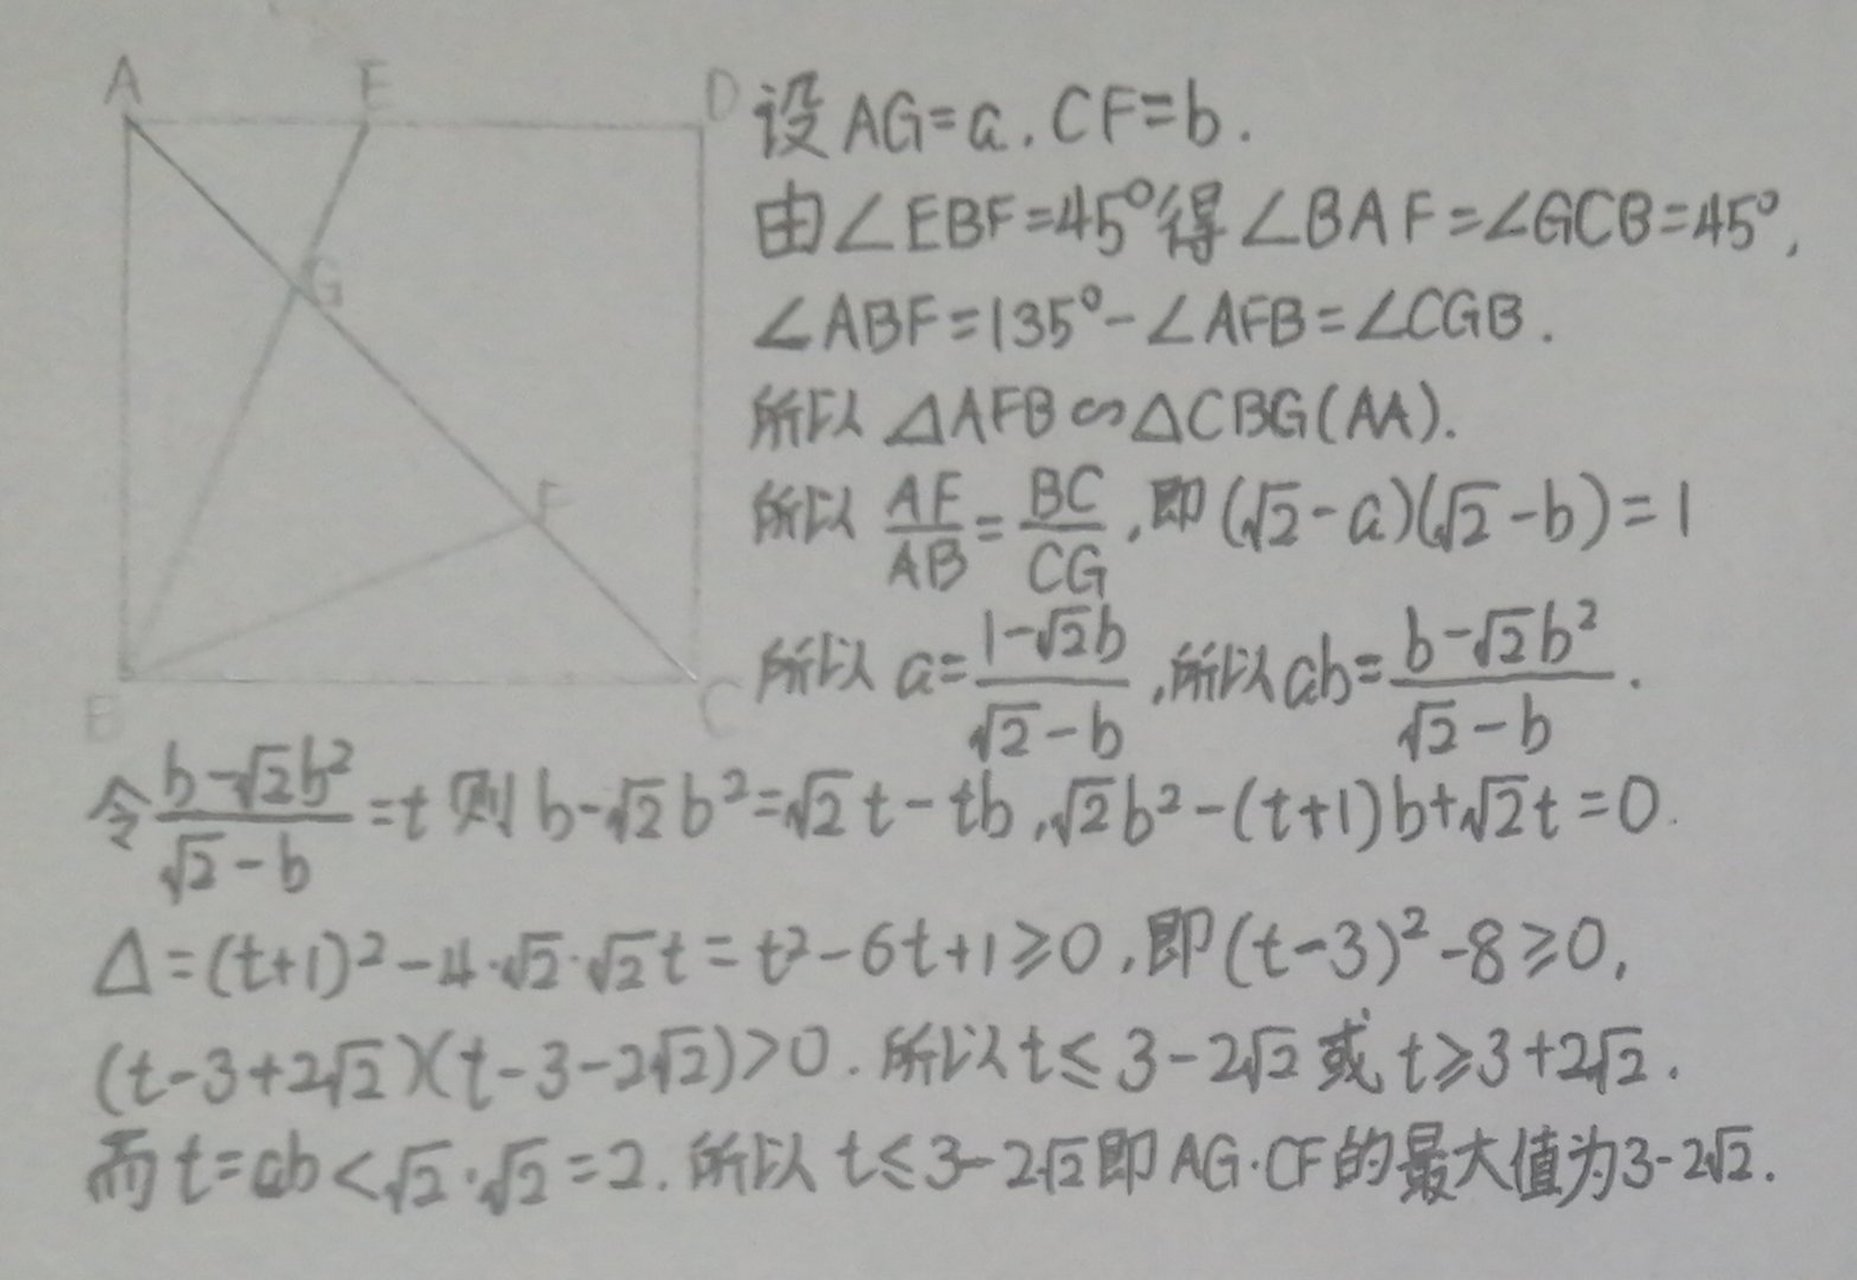 A E D
G
F
B C
设 AG=a, CF=b.
由∠EBF=45°得∠BAF=∠GCB=45°,
∠ABF=135°-∠AFB=∠CGB.
所以 △AFB∽△CBG(AA).
所以 AF/AB=BC/CG,即(√2-a)(√2-b)=1
所以 a=(1-√2b)/(√2-b),所以ab=(b-√2b²)/(√2-b).
令(b-√2b²)/(√2-b)=t 则 b-√2b²=√2t-tb,√2b²-(t+1)b+√2t=0.
△=(t+1)²-4·√2·√2t=t²-6t+1≥0,即(t-3)²-8≥0,
(t-3+2√2)(t-3-2√2)>0.所以t≤3-2√2或t≥3+2√2.
而t=ab<√2·√2=2.所以t≤3-2√2即AG·CF的最大值为3-2√2.